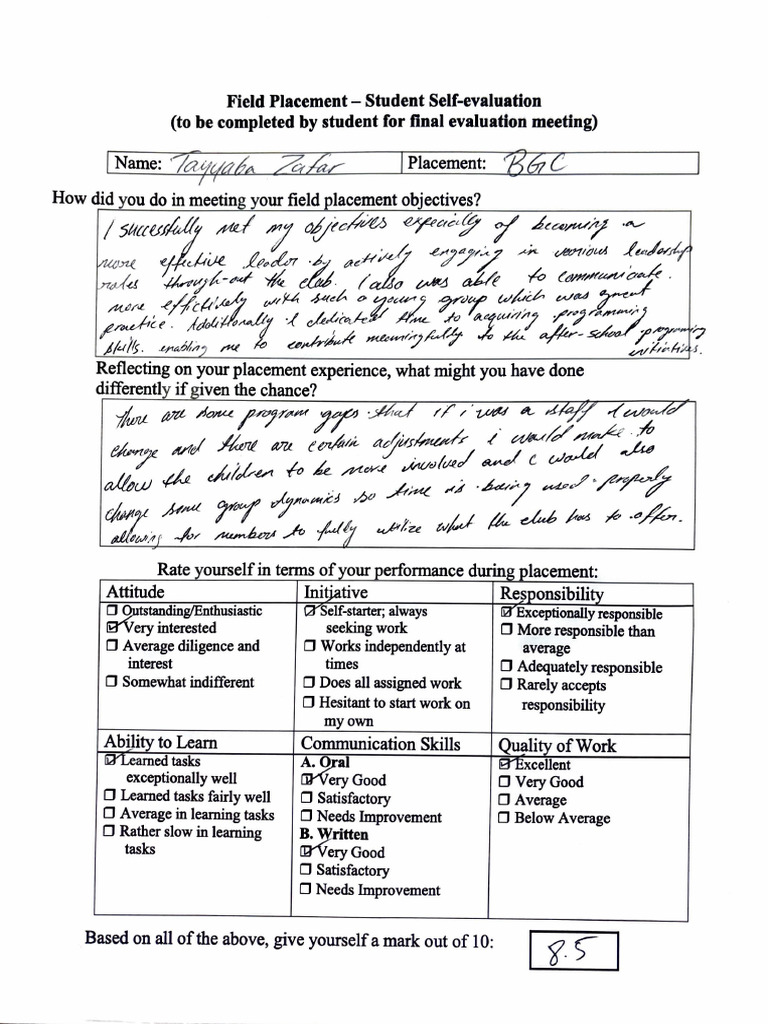 Field Placement – Student Self-evaluation
(to be completed by student for final evaluation meeting)
Name: Tayyaba Zafar Placement: BGC
How did you do in meeting your field placement objectives?
I successfully met my objectives especially of becoming a
more effective leader by actively engaging in various leadership
roles through-out the club. I also was able to communicate
more effictively with such a young group which was great
practice. Additionally I dedicated time to acquiring programming
skills. enabling me to contribute meaningfully to the after-school programing
initiatives.
Reflecting on your placement experience, what might you have done
differently if given the chance?
there are some program gaps that if i was a staff I would
change and there are certain adjustments i would make to
allow the children to be more involved and I would also
change some group dynamics so time is being used properly
allowing for numbers to fully utilize what the club has to offer.
Rate yourself in terms of your performance during placement:
Attitude Initiative Responsibility
☐ Outstanding/Enthusiastic ☑ Self-starter; always ☑ Exceptionally responsible
☑ Very interested seeking work ☐ More responsible than
☐ Average diligence and ☐ Works independently at average
interest times ☐ Adequately responsible
☐ Somewhat indifferent ☐ Does all assigned work ☐ Rarely accepts
☐ Hesitant to start work on responsibility
my own
Ability to Learn Communication Skills Quality of Work
☑ Learned tasks A. Oral ☑ Excellent
exceptionally well ☑ Very Good ☐ Very Good
☐ Learned tasks fairly well ☐ Satisfactory ☐ Average
☐ Average in learning tasks ☐ Needs Improvement ☐ Below Average
☐ Rather slow in learning B. Written
tasks ☑ Very Good
☐ Satisfactory
☐ Needs Improvement
Based on all of the above, give yourself a mark out of 10: 8.5